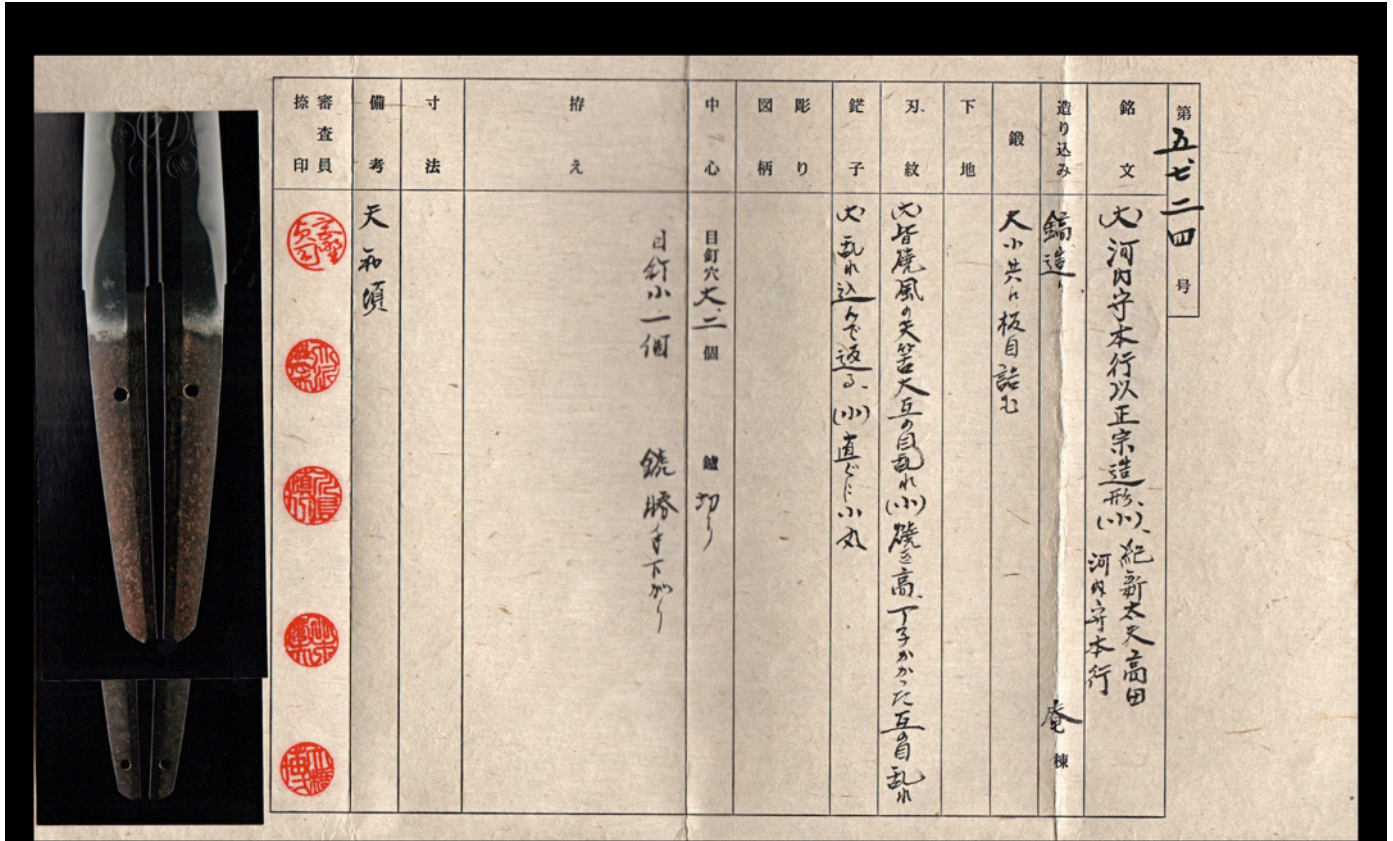 第五七二四号
銘文
(大)河内守本行以正宗造形、(小)、紀新太夫高田
河内守本行
造り込み
鎬造り
庵棟
鍛
大小共に板目詰む
下地
刃紋
(大)皆焼風の矢筈大互の目乱れ(小)焼き高、丁子かかった互の目乱れ
鋩子
(大)乱れ込んで返る、(小)直ぐに小丸
彫り
図柄
中心
目釘穴大、二個 鑢切り
目釘小一個 鑢勝手下がり
拵え
寸法
備考
天和頃
審査員
捺印